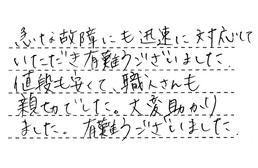 急な故障にも迅速に対応して
いただき有難うございました
値段も安くて、職人さんも
親切でした。大変助かり
ました。有難うございました